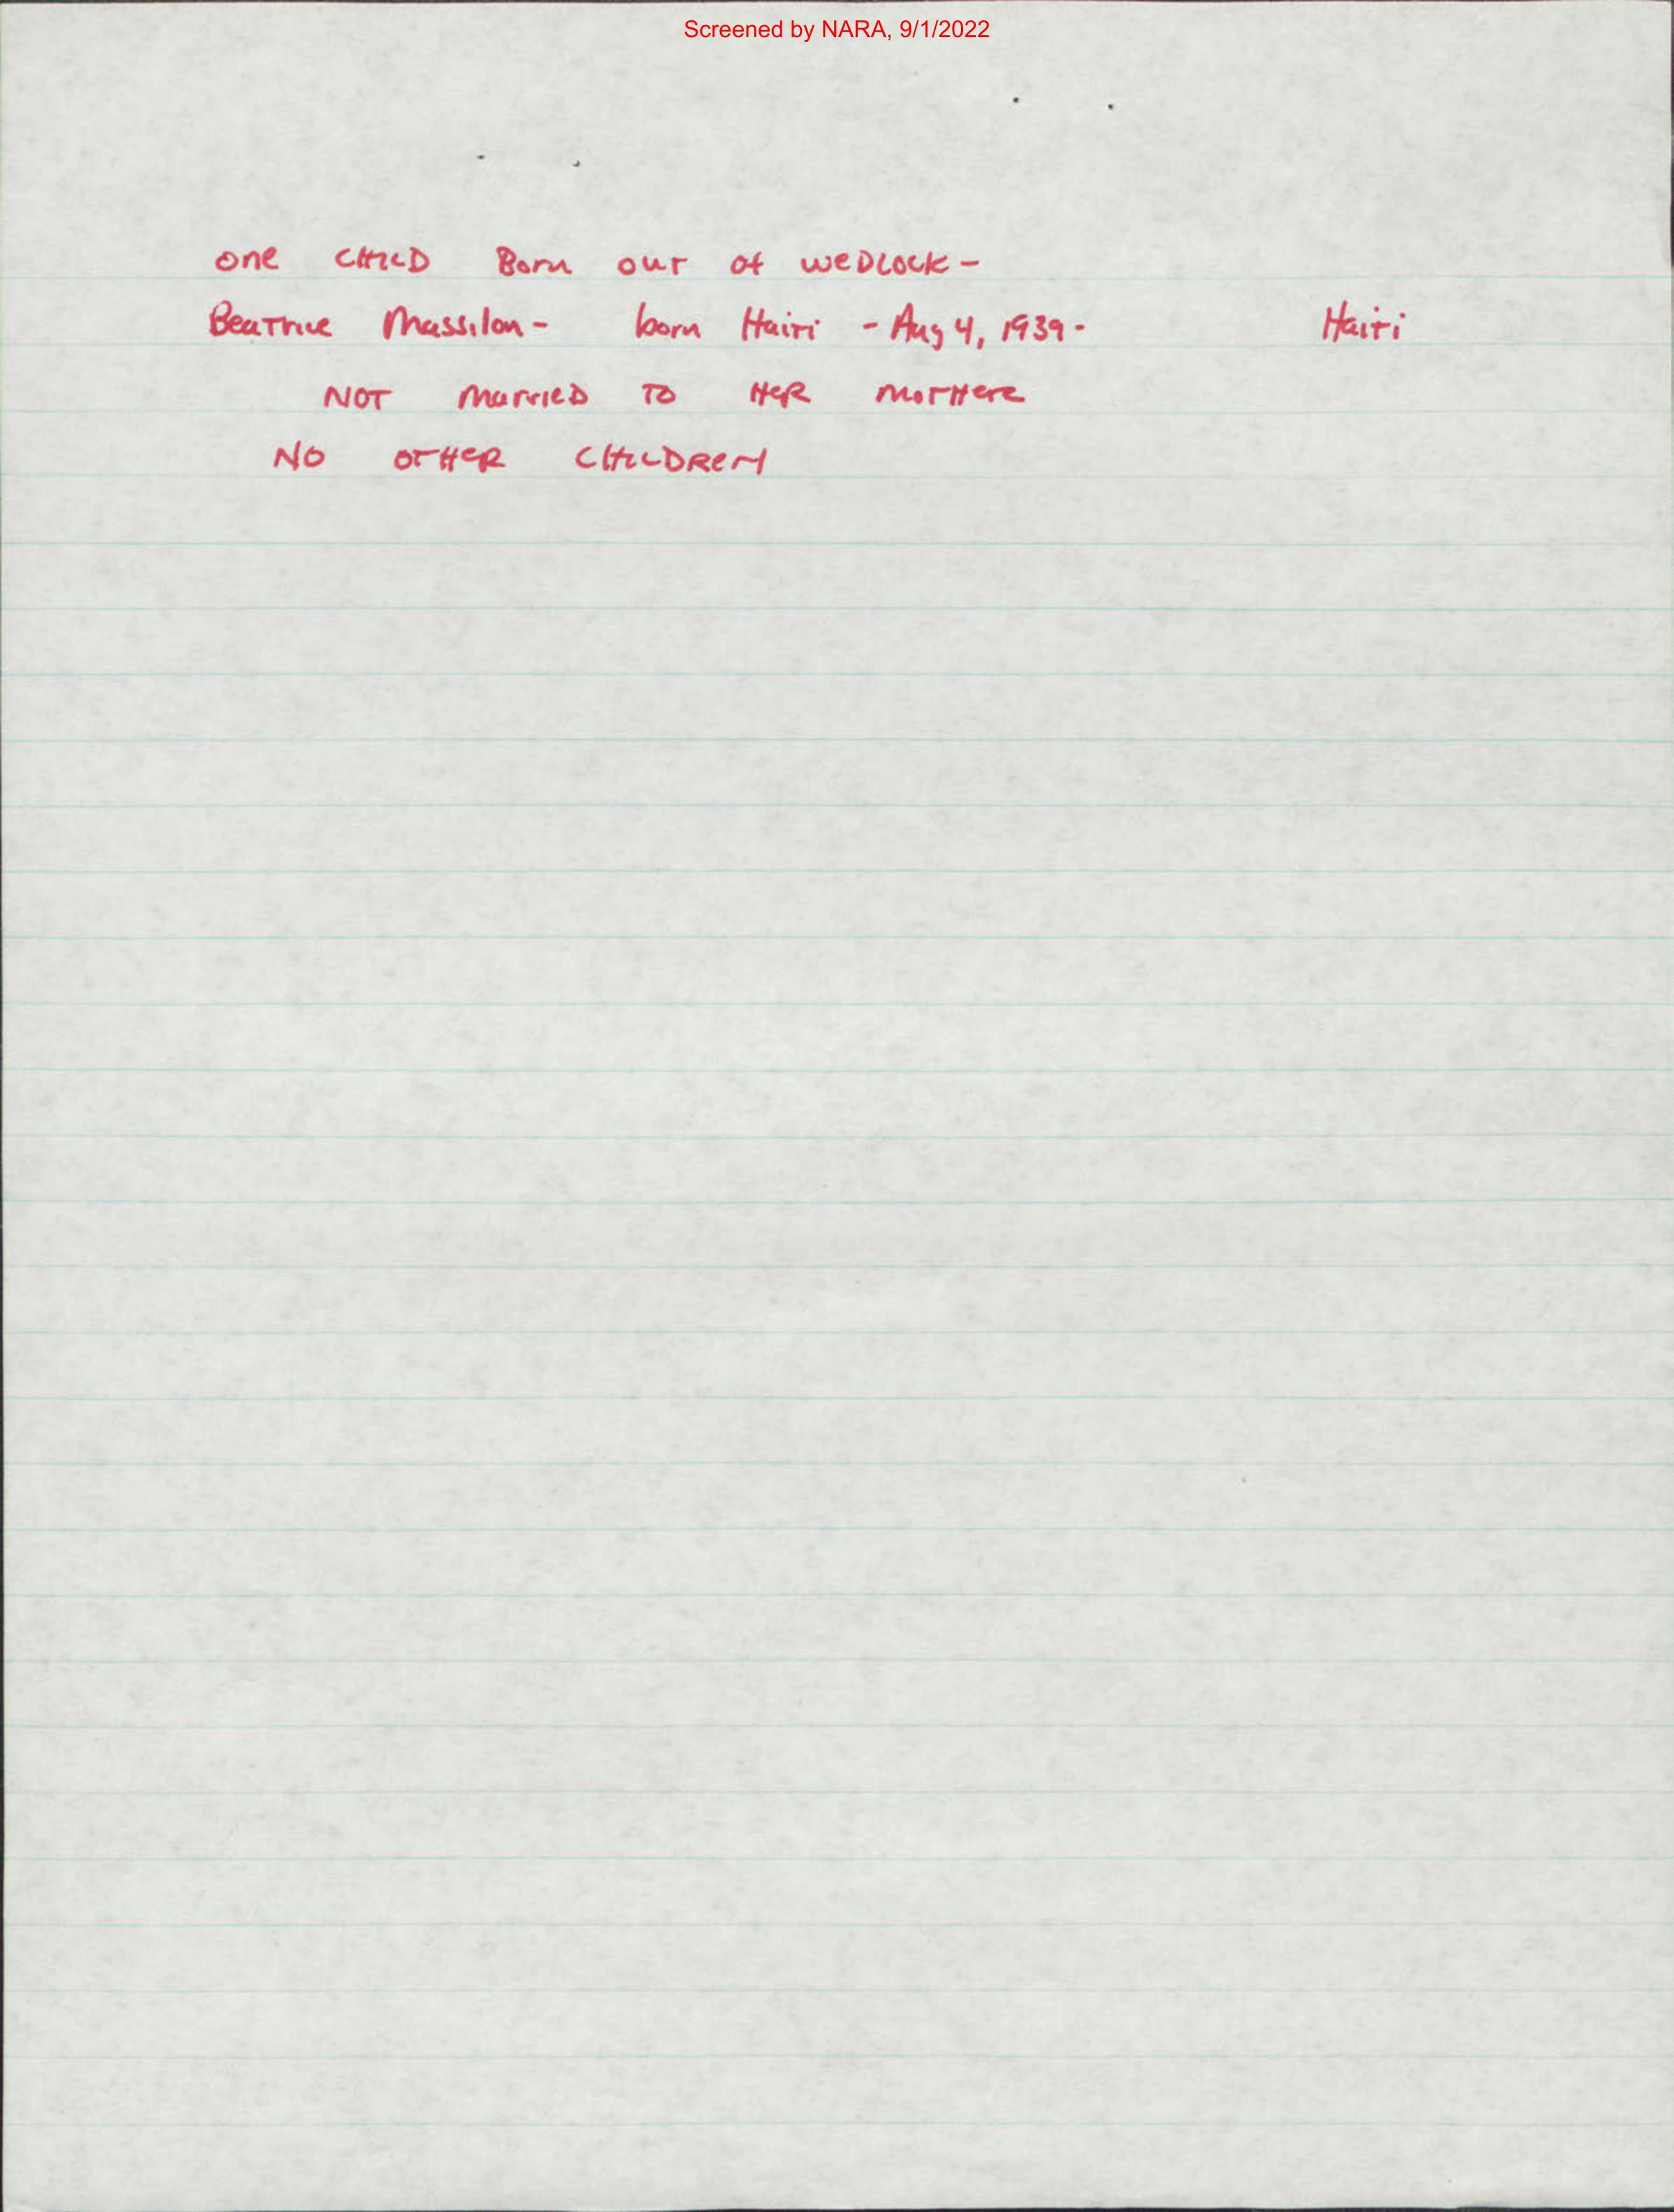 Screened by NARA, 9/1/2022
one CHILD Born out of WEDLOCK -
Beatrice Massilon - born Haiti - Aug 4, 1939 - Haiti
NOT married TO HER MOTHER
NO OTHER CHILDREN